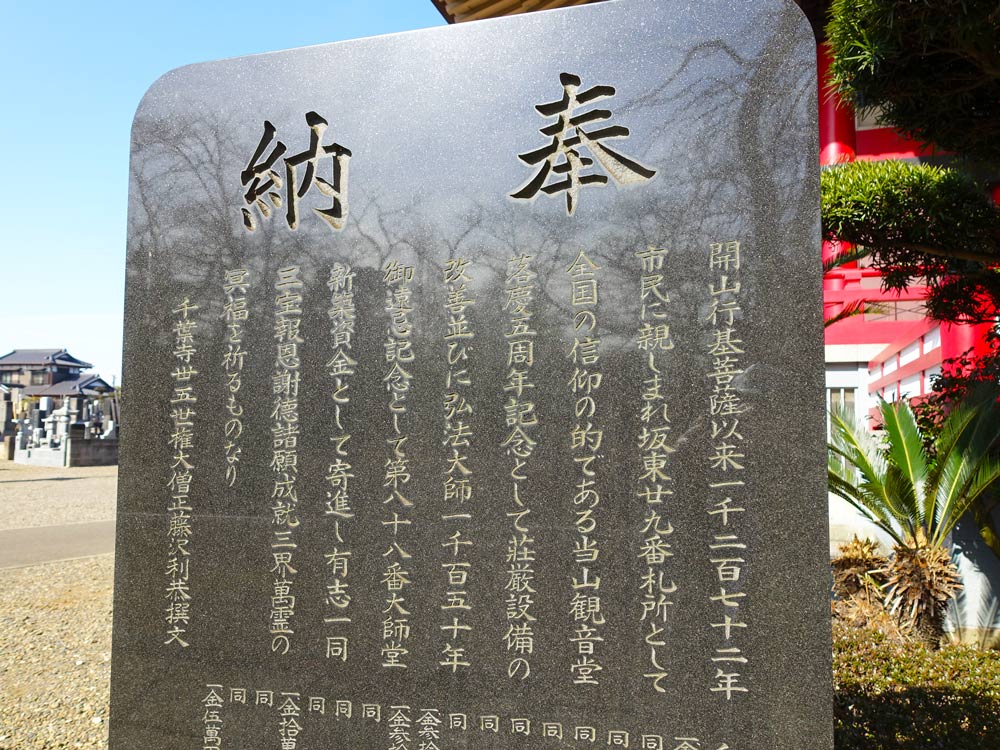 奉納
開山行基菩薩以来一千二百七十二年
市民に親しまれ坂東廿九番札所として
全国の信仰の的である当山観音堂
落慶五周年記念として荘厳設備の
改善並びに弘法大師一千百五十年
御遠忌記念として第八十八番大師堂
新築資金として寄進し有志一同
三宝報恩謝徳諸願成就三界萬霊の
冥福を祈るものなり
千葉寺世五世権大僧正藤沢利恭撰文
一金
同
同
同
同
同
同
同
一金参拾
一金参拾
同
同
同
一金拾萬
同
同
一金伍萬